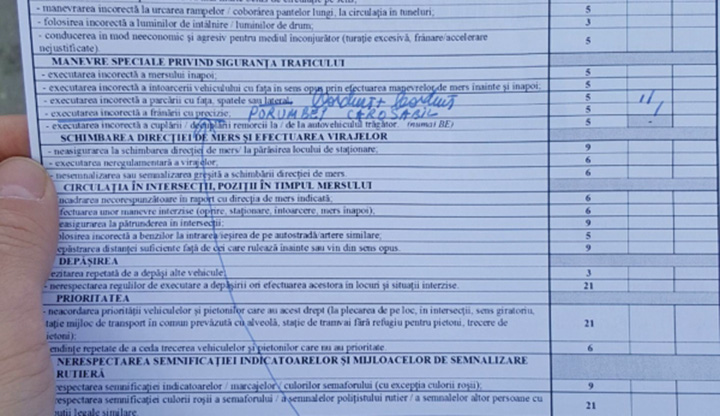 - manevrarea incorectă la urcarea rampelor / coborârea pantelor lungi, la circulația în tuneluri; 5
- folosirea incorectă a luminilor de întâlnire / luminilor de drum; 3
- conducerea în mod neeconomic și agresiv pentru mediul înconjurător (turație excesivă, frânare/accelerare
nejustificate). 5
MANEVRE SPECIALE PRIVIND SIGURANȚA TRAFICULUI
- executarea incorectă a mersului înapoi; 5
- executarea incorectă a întoarcerii vehiculului cu fața în sens opus prin efectuarea manevrelor de mers înainte și înapoi; 5
- executarea incorectă a parcării cu fața, spatele sau lateral; 5
- executarea incorectă a frânării cu precizie; PORUMBEI CAROSABIL 5
- executarea incorectă a cuplării / decuplării remorcii la / de la autovehiculul trăgător. (numai BE) 5
SCHIMBAREA DIRECȚIEI DE MERS ȘI EFECTUAREA VIRAJELOR
- neasigurarea la schimbarea direcției de mers/ la părăsirea locului de staționare; 9
- executarea neregulamentară a virajelor; 6
- nesemnalizarea sau semnalizarea greșită a schimbării direcției de mers. 6
CIRCULAȚIA ÎN INTERSECȚII, POZIȚII ÎN TIMPUL MERSULUI
ncadrarea necorespunzătoare în raport cu direcția de mers indicată; 6
fectuarea unor manevre interzise (oprire, staționare, întoarcere, mers înapoi); 6
easigurarea la pătrunderea în intersecții; 9
olosirea incorectă a benzilor la intrarea/ieșirea de pe autostradă/artere similare; 5
epăstrarea distanței suficiente față de cei care rulează înainte sau vin din sens opus. 9
DEPĂȘIREA
ezitarea repetată de a depăși alte vehicule; 3
- nerespectarea regulilor de executare a depășirii ori efectuarea acestora în locuri și situații interzise. 21
PRIORITATEA
- neacordarea priorității vehiculelor și pietonilor care au acest drept (la plecarea de pe loc, în intersecții, sens giratoriu,
tație mijloc de transport în comun prevăzută cu alveolă, stație de tramvai fără refugiu pentru pietoni, trecere de
ietoni); 21
endințe repetate de a ceda trecerea vehiculelor și pietonilor care nu au prioritate. 6
NERESPECTAREA SEMNIFICAȚIEI INDICATOARELOR ȘI MIJLOACELOR DE SEMNALIZARE
RUTIERĂ
respectarea semnificației indicatoarelor / marcajelor / culorilor semaforului (cu excepția culorii roșii); 9
respectarea semnificației culorii roșii a semaforului / a semnalelor polițistului rutier / a semnalelor altor persoane cu
buții legale similare. 21